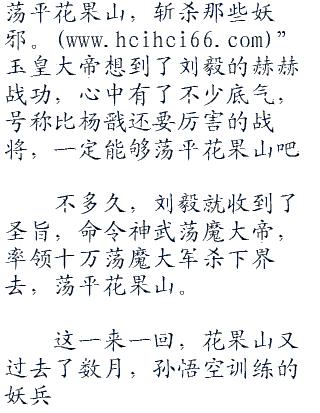 荡平花果山，斩杀那些妖
邪。(www.hcihci66.com)”
玉皇大帝想到了刘毅的赫赫
战功，心中有了不少底气，
号称比杨戬还要厉害的战
将，一定能够荡平花果山吧
不多久，刘毅就收到了
圣旨，命令神武荡魔大帝，
率领十万荡魔大军杀下界
去，荡平花果山。
这一来一回，花果山又
过去了数月，孙悟空训练的
妖兵